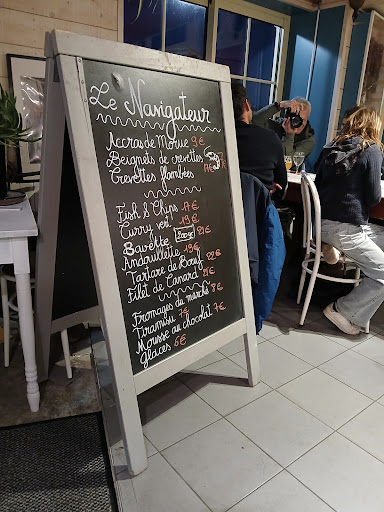 Le Navigateur
Accras de Morue 9€
Beignets de crevettes 9€
Crevettes flambées 17€
Fish & Chips 17€
Curry vert 19€
Bavette 21€
Andouillette 19€
Tartare de Boeuf 22€
Filet de Canard 21€
Fromages du marché 8€
Tiramisu 7€
Mousse au chocolat 7€
glaces 6€